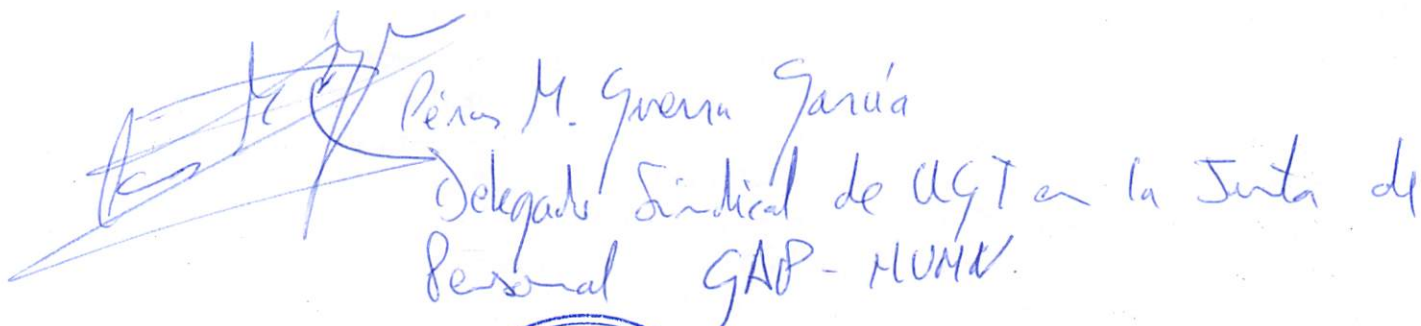 M. Guerra García
Delegado Sindical de UGT en la Junta de
Personal GAP - HUMN.